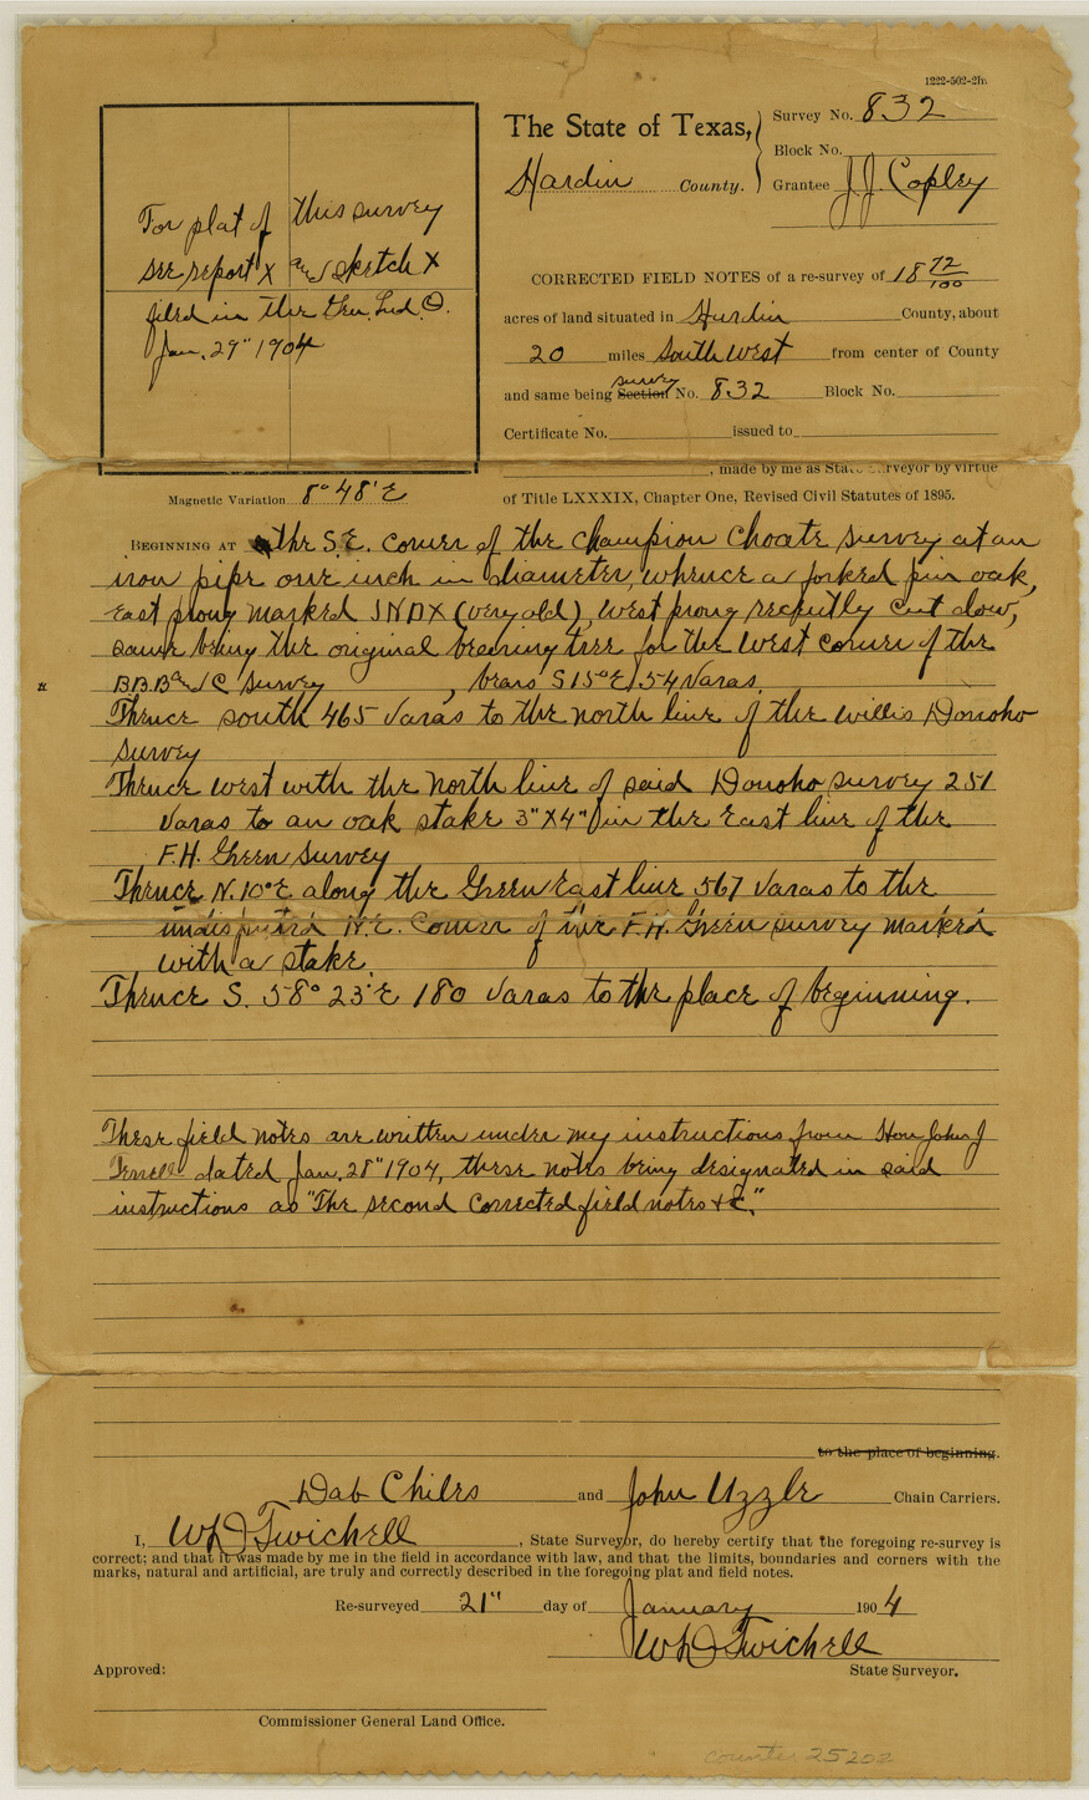 1222-502-2m.
The State of Texas,
Hardin County.
Survey No. 832
Block No.
Grantee J.J. Copley
For plat of this survey
see report X and sketch X
filed in the Gen. Lnd. O.
Jan. 29" 1904
CORRECTED FIELD NOTES of a re-survey of 18 72/100
acres of land situated in Hardin County, about
20 miles South West from center of County
and same being Section survey No. 832 Block No.
Certificate No. issued to
, made by me as State Surveyor by virtue
Magnetic Variation 8° 48' E
of Title LXXXIX, Chapter One, Revised Civil Statutes of 1895.
BEGINNING AT the S.E. corner of the Champion Choate survey at an
iron pipe one inch in diameter, whence a forked pin oak,
East prong marked JNDX (very old), West prong recently cut down,
same being the original bearing tree for the West corner of the
B.B.B and C survey, bears S 15° E 54 Varas.
Thence South 465 Varas to the north line of the Willis Donoho
survey
Thence West with the North line of said Donoho survey 251
Varas to an oak stake 3" X 4" in the East line of the
F.H. Green Survey
Thence N. 10° E along the Green East line 567 Varas to the
undisputed N.E. Corner of the F.H. Green survey marked
with a stake.
Thence S. 58° 23' E 180 Varas to the place of beginning.
These field notes are written under my instructions from Hon John J
Terrell dated Jan. 28" 1904, these notes being designated in said
instructions as "The second Corrected field notes &c."
to the place of beginning.
Dab Chiles and John Uzzle Chain Carriers.
I, W.D. Twichell, State Surveyor, do hereby certify that the foregoing re-survey is
correct; and that it was made by me in the field in accordance with law, and that the limits, boundaries and corners with the
marks, natural and artificial, are truly and correctly described in the foregoing plat and field notes.
Re-surveyed 21" day of January 1904
W.D. Twichell
Approved:
State Surveyor.
Commissioner General Land Office.
counter 25202